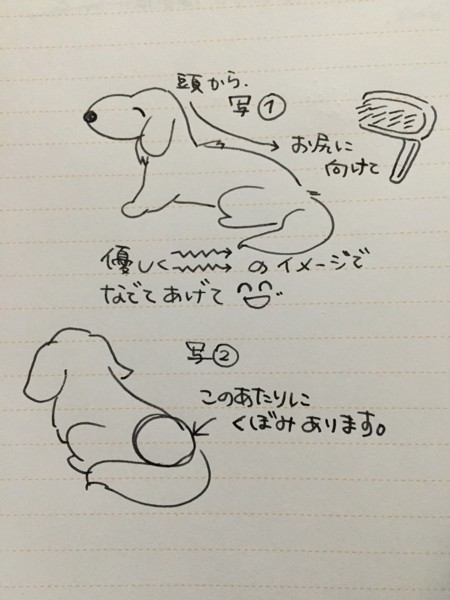 頭から.
写①
お尻に
向けて
優しく のイメージで
なでてあげて
写②
このあたりに
くぼみあります。